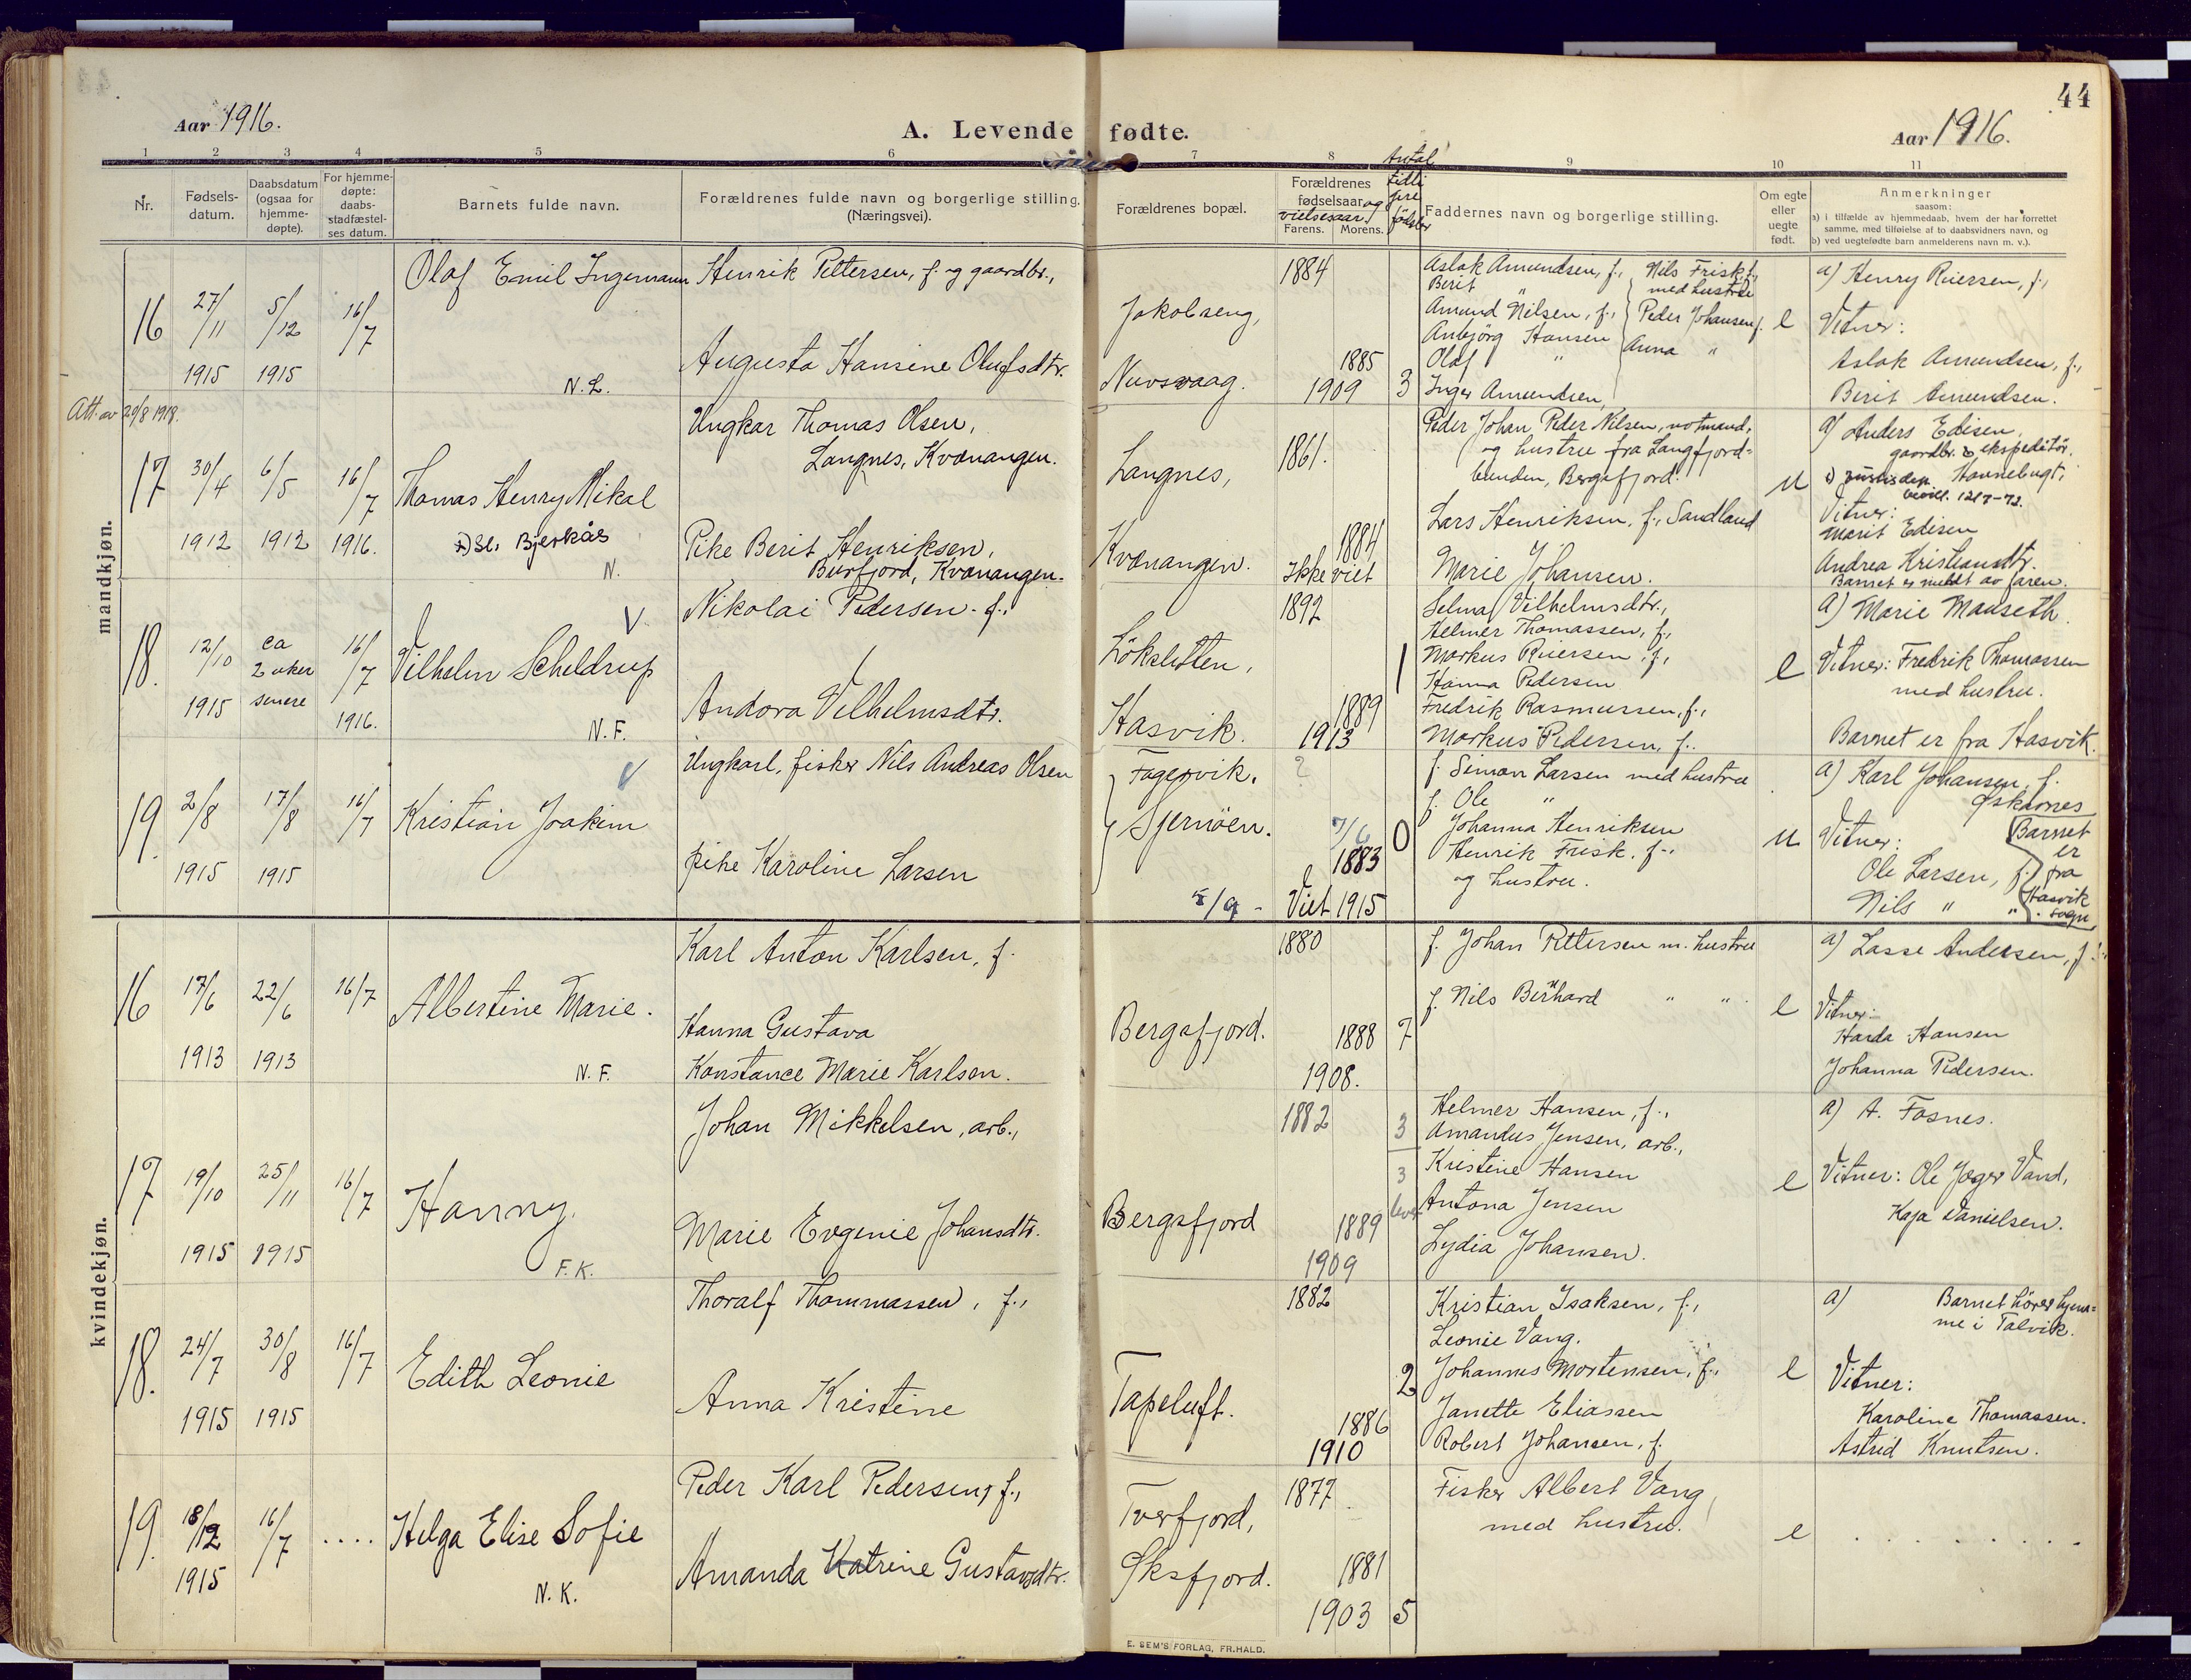 44
Aar 1916.
A. Levende fødte.
Aar 1916.
1 2 3 4 5 6 7 8 9 10 11
Nr.
Fødsels-
datum.
Daabsdatum
(ogsaa for
hjemme-
døpte).
For hjemme-
døpte:
daabs-
stadfæstel-
ses datum.
Barnets fulde navn.
Forældrenes fulde navn og borgerlige stilling.
(Næringsvei).
Forældrenes bopæl.
Forældrenes
fødselsaar og
vielsesaar.
Farens. Morens.
Antal
tidli
gere
fødsler
Faddernes navn og borgerlige stilling.
Om egte
eller
uegte
født.
Anmerkninger
saasom:
a) i tilfælde av hjemmedaab, hvem der har forrettet
samme, med tilføielse af to daabsvidners navn, og
b) ved uegtefødte barn anmelderens navn m. v.).
mandkjøn.
16
27/11
1915
5/12
1915
16/7
Olaf Emil Ingemann
N. L.
Henrik Pettersen, f. og gaardbr.,
Augusta Hansine Olufsdtr.
Jakobseng,
Nuvsvaag.
1884
1885
1909
3
Aslak Amundsen, f.,
Berit "
Amund Nilsen, f.,
Anbjörg Hansen
Olaf "
Inger Amundsen,
Nils Frisk f.,
med hustru
Peder Johansen f.
Anna "
e
a) Henry Riersen, f.,
Vitner:
Aslak Amundsen, f.,
Berit Amundsen.
Att. av 29/8 1918.
17
30/4
1912
6/5
1912
16/7
1916.
Thomas Henry Mikal
Bjerkås
N.
Ungkar Thomas Olsen,
Langnes, Kvænangen.
Pike Berit Henriksen,
Burfjord, Kvænangen.
Langnes,
Kvænangen.
1861.
1884
Ikke viet
Peder Johan Peder Nilsen, notmand,
og hustru fra Langfjord-
bunden, Bergsfjord.
Lars Henriksen, f., Sandland
Marie Johansen.
u
a) Anders Edisen,
gaardbr. & ekspeditör.
Hannebugt,
Vitner:
Marit Edisen
Andrea Kristiansdtr.
Barnet er meldt av faren.
18.
12/10
1915
ca
2 uker
senere
16/7
1916.
Vilhelm Scheldrup
N. F.
Nikolai Pedersen f.,
Andora Vilhelmsdtr.
Lökslætten,
Hasvik.
1892
1889
1913
1
Selma Vilhelmsdtr.,
Helmer Thomassen, f.,
Markus Riersen, f.,
Hanna Pedersen
Fredrik Rasmussen, f.,
Markus Pedersen, f..
e
a) Marie Mauseth.
Vitner: Fredrik Thomassen
med hustru.
Barnet er fra Hasvik.
19.
2/8
1915
17/8
1915
16/7
Kristian Joakim
Ungkarl, fisker Nils Andreas Olsen
pike Karoline Larsen
Fagervik,
Sjernöen.
?
7/6
1883
Viet 1915
0
f. Simon Larsen med hustru
f. Ole "
Johanna Henriksen
Henrik Frisk. f.,
og hustru.
u
a) Karl Johansen, f.
Øksnes
Vitner:
Ole Larsen, f.
Nils " "
Barnet
er
fra
Hasvik
sogn
kvindekjøn.
16
17/6
1913
22/6
1913
16/7
Albertine Marie.
N. F.
Karl Anton Karlsen, f.
Hanna Gustava
Konstance Marie Karlsen.
Bergsfjord.
1880
1888
1908.
7
f. Johan Pettersen m. hustru
f. Nils Bernhard " "
e
a) Lasse Andersen, f.
Vitner:
Harda Hansen
Johanna Pedersen.
17
19/10
1915
25/11
1915
16/7
Hanny.
F. K.
Johan Mikkelsen, arb.,
Marie Evgenie Johansdtr.
Bergsfjord
1882
1889
1909
3
3
lever
Helmer Hansen, f.,
Amandus Jensen, arb.,
Kristine Hansen
Antona Jensen
Lydia Johansen.
e
a) A. Fosnes.
Vitner: Ole Jæger Vand,
Kaja Danielsen.
18.
24/7
1915
30/8
1915
16/7
Edith Leonie
Thoralf Thommassen, f.,
Anna Kristine
Tapeluft.
1882
1886
1910
2
Kristian Isaksen, f.,
Leonie Vang.
Johannes Mortensen, f.,
Janette Eliassen
Robert Johansen, f.
e
a) Barnet hörer hjem-
me i Talvik.
Vitner:
Karoline Thomassen.
Astrid Knutsen.
19.
18/12
1915
16/7
....
Helga Elise Sofie
N. K.
Peder Karl Pedersen, f.,
Amanda Katrine Gustavsdtr.
Tverfjord,
Øksfjord.
1877
1881
1903
5
Fisker Albert Vang
med hustru.
e
E. SEM'S FORLAG, FR.HALD.